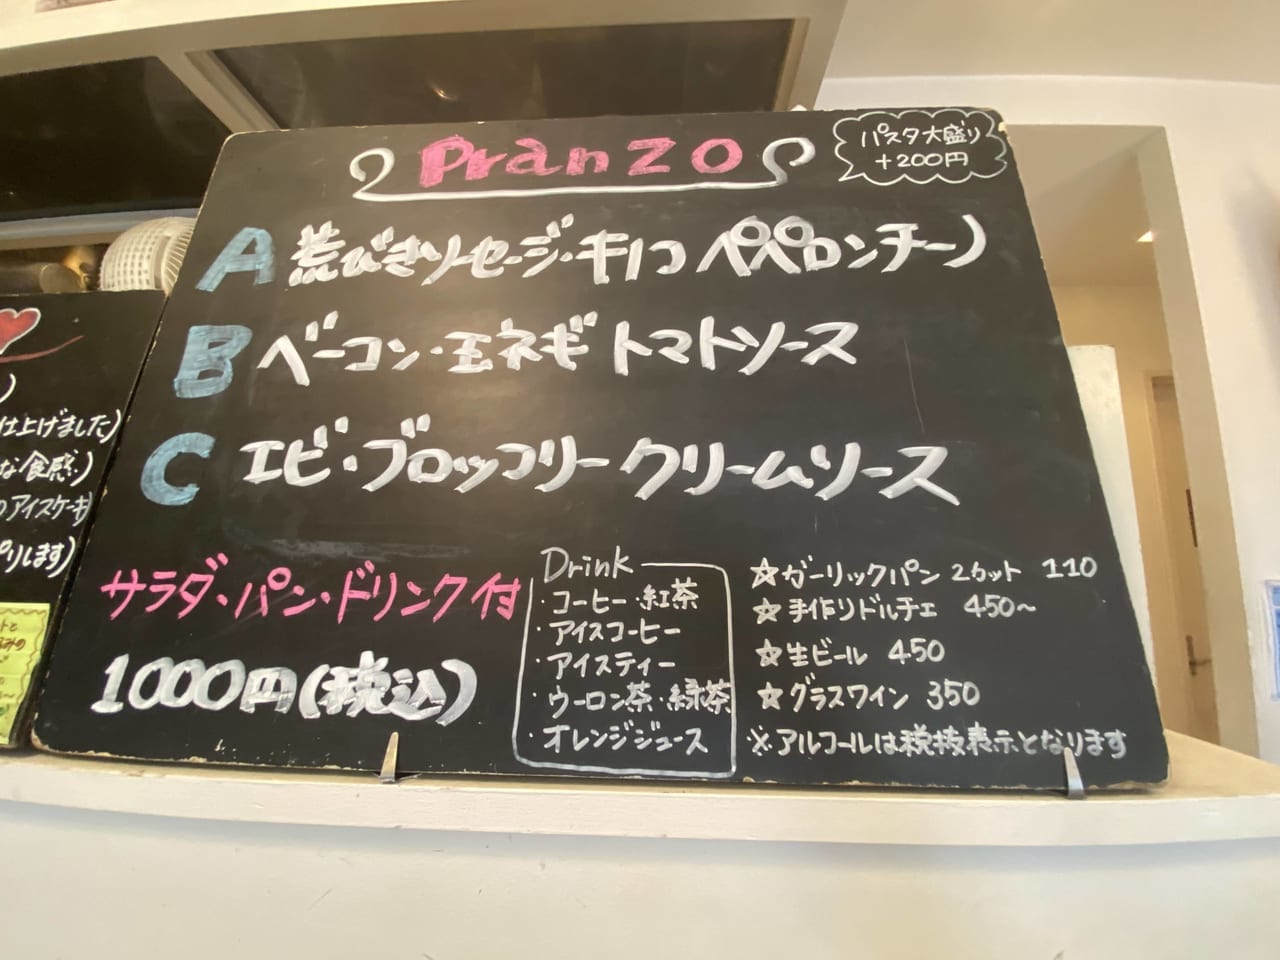 Pranzo
パスタ大盛り
+200円
A 荒びきソーセージ・キノコ ペペロンチーノ
B ベーコン・玉ネギ トマトソース
C エビ・ブロッコリー クリームソース
サラダ・パン・ドリンク付
1000円(税込)
Drink
・コーヒー・紅茶
・アイスコーヒー
・アイスティー
・ウーロン茶・緑茶
・オレンジジュース
☆ガーリックパン 2カット 110
☆手作りドルチェ 450~
☆生ビール 450
☆グラスワイン 350
※アルコールは税抜表示となります
)
仕上げました)
な食感)
のアイスケーキ)
プリします)